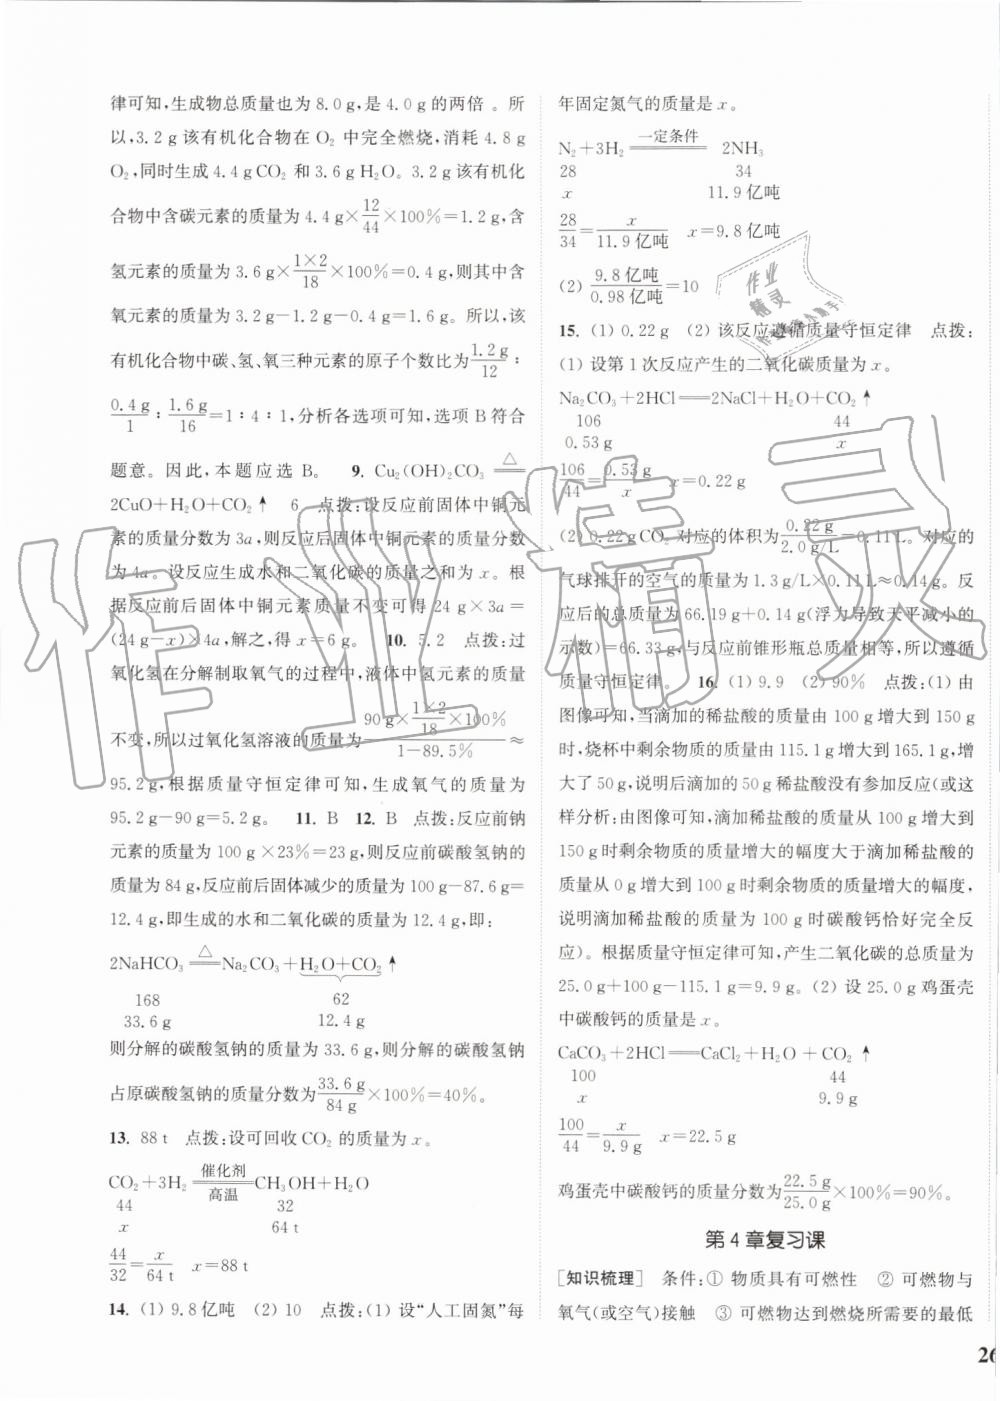 律可知,生成物总质量也为8.0 g,是4.0 g的两倍 。所
以,3.2 g该有机化合物在O₂中完全燃烧,消耗4.8 g
O₂,同时生成4.4 g CO₂和3.6 g H₂O。3.2 g该有机化
合物中含碳元素的质量为4.4 g×12/44×100%=1.2 g,含
氢元素的质量为3.6 g×1×2/18×100%=0.4 g,则其中含
氧元素的质量为3.2 g-1.2 g-0.4 g=1.6 g。所以,该
有机化合物中碳、氢、氧三种元素的原子个数比为1.2 g/12:
0.4 g/1:1.6 g/16=1:4:1,分析各选项可知,选项B符合
题意。因此,本题应选B。 9. Cu₂(OH)₂CO₃ =△=
2CuO+H₂O+CO₂↑ 6 点拨:设反应前固体中铜元
素的质量分数为3a,则反应后固体中铜元素的质量分数
为4a。设反应生成水和二氧化碳的质量之和为x。根
据反应前后固体中铜元素质量不变可得24 g×3a=
(24 g-x)×4a,解之,得x=6 g。 10. 5.2 点拨:过
氧化氢在分解制取氧气的过程中,液体中氢元素的质量
不变,所以过氧化氢溶液的质量为(90 g×1×2/18×100%)/(1-89.5%)≈
95.2 g,根据质量守恒定律可知,生成氧气的质量为
95.2 g-90 g=5.2 g。 11. B 12. B 点拨:反应前钠
元素的质量为100 g×23%=23 g,则反应前碳酸氢钠的
质量为84 g,反应前后固体减少的质量为100 g-87.6 g=
12.4 g,即生成的水和二氧化碳的质量为12.4 g,即:
2NaHCO₃ =△= Na₂CO₃+H₂O+CO₂↑
168 62
33.6 g 12.4 g
则分解的碳酸氢钠的质量为33.6 g,则分解的碳酸氢钠
占原碳酸氢钠的质量分数为33.6 g/84 g×100%=40%。
13. 88 t 点拨:设可回收CO₂的质量为x。
CO₂+3H₂ =催化剂/高温= CH₃OH+H₂O
44 32
x 64 t
44/32=x/64 t x=88 t
14. (1) 9.8亿吨 (2) 10 点拨:(1) 设“人工固氮”每
年固定氮气的质量是x。
N₂+3H₂ =一定条件= 2NH₃
28 34
x 11.9亿吨
28/34=x/11.9亿吨 x=9.8亿吨
(2) 9.8亿吨/0.98亿吨=10
15. (1) 0.22 g (2) 该反应遵循质量守恒定律 点拨:
(1) 设第1次反应产生的二氧化碳质量为x。
Na₂CO₃+2HCl══2NaCl+H₂O+CO₂↑
106 44
0.53 g x
106/44=0.53 g/x x=0.22 g
(2) 0.22 g CO₂对应的体积为0.22 g/2.0 g/L=0.11 L。对应的
气球排开的空气的质量为1.3 g/L×0.11 L≈0.14 g。反
应后的总质量为66.19 g+0.14 g(浮力导致天平减小的
示数)=66.33 g,与反应前锥形瓶总质量相等,所以遵循
质量守恒定律。 16. (1) 9.9 (2) 90% 点拨:(1) 由
图像可知,当滴加的稀盐酸的质量由100 g增大到150 g
时,烧杯中剩余物质的质量由115.1 g增大到165.1 g,增
大了50 g,说明后滴加的50 g稀盐酸没有参加反应(或这
样分析:由图像可知,滴加稀盐酸的质量从100 g增大到
150 g时剩余物质的质量增大的幅度大于滴加稀盐酸的
质量从0 g增大到100 g时剩余物质的质量增大的幅度,
说明滴加稀盐酸的质量为100 g时碳酸钙恰好完全反
应)。根据质量守恒定律可知,产生二氧化碳的总质量为
25.0 g+100 g-115.1 g=9.9 g。(2) 设25.0 g鸡蛋壳
中碳酸钙的质量是x。
CaCO₃+2HCl══CaCl₂+H₂O+CO₂↑
100 44
x 9.9 g
100/44=x/9.9 g x=22.5 g
鸡蛋壳中碳酸钙的质量分数为22.5 g/25.0 g×100%=90%。
第4章复习课
[知识梳理] 条件:① 物质具有可燃性 ② 可燃物与
氧气(或空气)接触 ③ 可燃物达到燃烧所需要的最低
26
作业精灵
作业
精灵